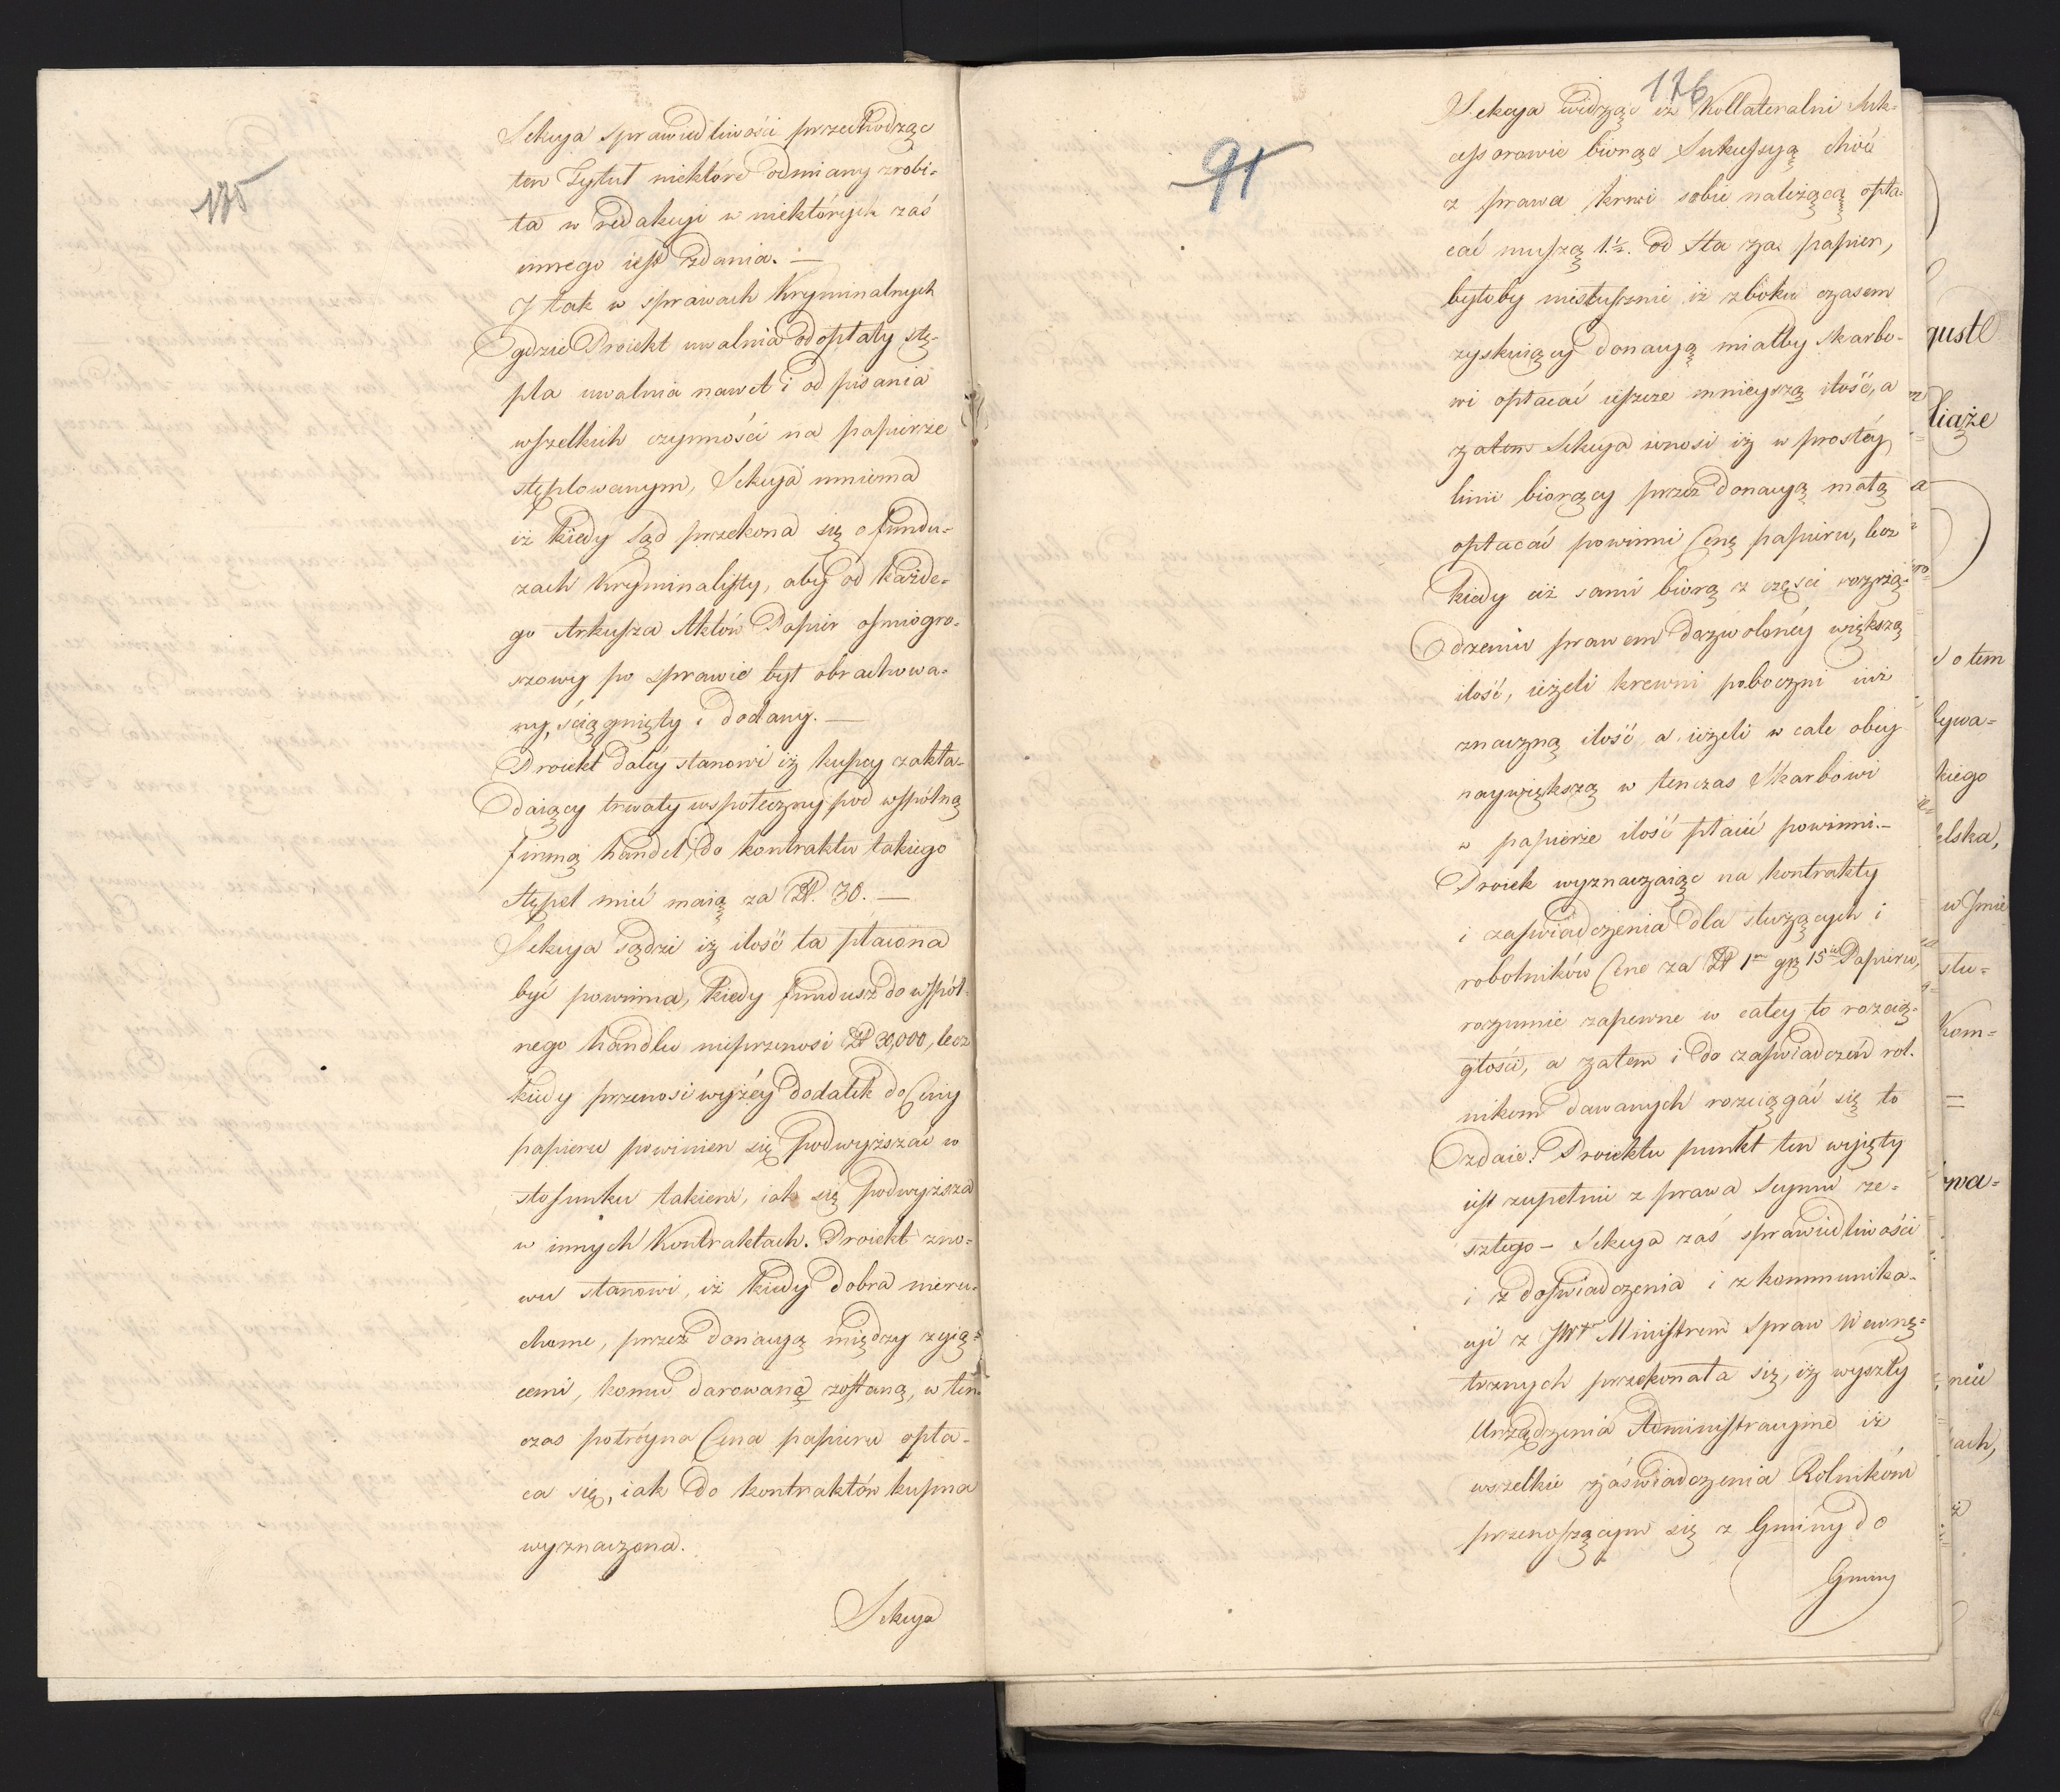 175
Sekcya sprawiedliwości przechodząc
ten Tytuł niektóre odmiany zrobi-
ła w redakcyi w niektórych zaś
innego iest zdania. —
I tak w sprawach Kryminalnych
gdzie Proiekt uwalnia od opłaty stę-
pla uwalnia nawet i od pisania
wszelkich czynności na papierze
stęplowanym, Sekcya mniema
iż kiedy Sąd przekona się o fundu-
szach Kryminalisty, aby od każde-
go Arkusza Aktów Papier osmiogro-
szowy po sprawie był obrachowa-
ny, ściągnięty i dodany. —
Proiekt daléy stanowi iż kupcy zakła-
daiący trwały wspołeczny pod wspólną
firmą handel, do kontraktu takiego
stępel mieć maią za Zł. 30. —
Sekcya sądzi iż ilość ta płacona
być powinna, kiedy fundusz do wspól-
nego handlu nieprzenosi Zł 30,000, lecz
kiedy przenosi wyżéy dodatek do Ceny
papieru powinien się podwyższać w
stosunku takiem, iak się podwyższa
w innych Kontraktach. Proiekt zno-
wu stanowi, iż kiedy dobra nieru-
chome, przez donacyą między żyią-
cemi, komu darowaną zostaną, w ten-
czas potróyna Cena papieru opła-
ca się, iak do kontraktów kupna
wyznaczona.
Sekcya
91
176
Sekcya widząc iż Kollateralni Suk-
cessorowie biorąc Sukcessyą choć
z prawa krwi sobie należącą opła-
cać muszą 1½. od Sta za papier,
byłoby niesłusznie iż zboku czasem
zyskuiący donacyą miałby skarbo-
wi opłacać ieszcze mnieyszą ilość, a
zatem Sekcya wnosi iż w prostéy
linii biorący przez donacyą małą
opłacać powinni Cenę papieru, lecz
kiedy ciż sami biorą z części rozrzą-
dzeniu prawem dozwolonéy większą
ilość, ieżeli krewni poboczni iuż
znaczną ilość, a ieżeli w cale obcy
naywiększą w tenczas Skarbowi
w papierze ilość płacić powinni. —
Proiek wyznaczaiąc na kontrakty
i zaświadczenia dla służących i
robotników Cenę za Zł 1 gr 15 Papieru,
rozumie zapewne w całey to rozcią-
głości, a zatem i do zaświadczeń rol-
nikom dawanych rozciągać się to
zdaie. Proiektu punkt ten wyjęty
iest zupełnie z prawa Seymu ze-
szłego — Sekcya zaś sprawiedliwości
i z doświadczenia i z kommunika-
cyi z JW Ministrem Spraw Wewnę-
trznych przekonała się, iż wyszły
Urządzenia Administracyine iż
wszelkie zaświadczenia Rolnikom
przenoszącym się z Gminy do
Gminy